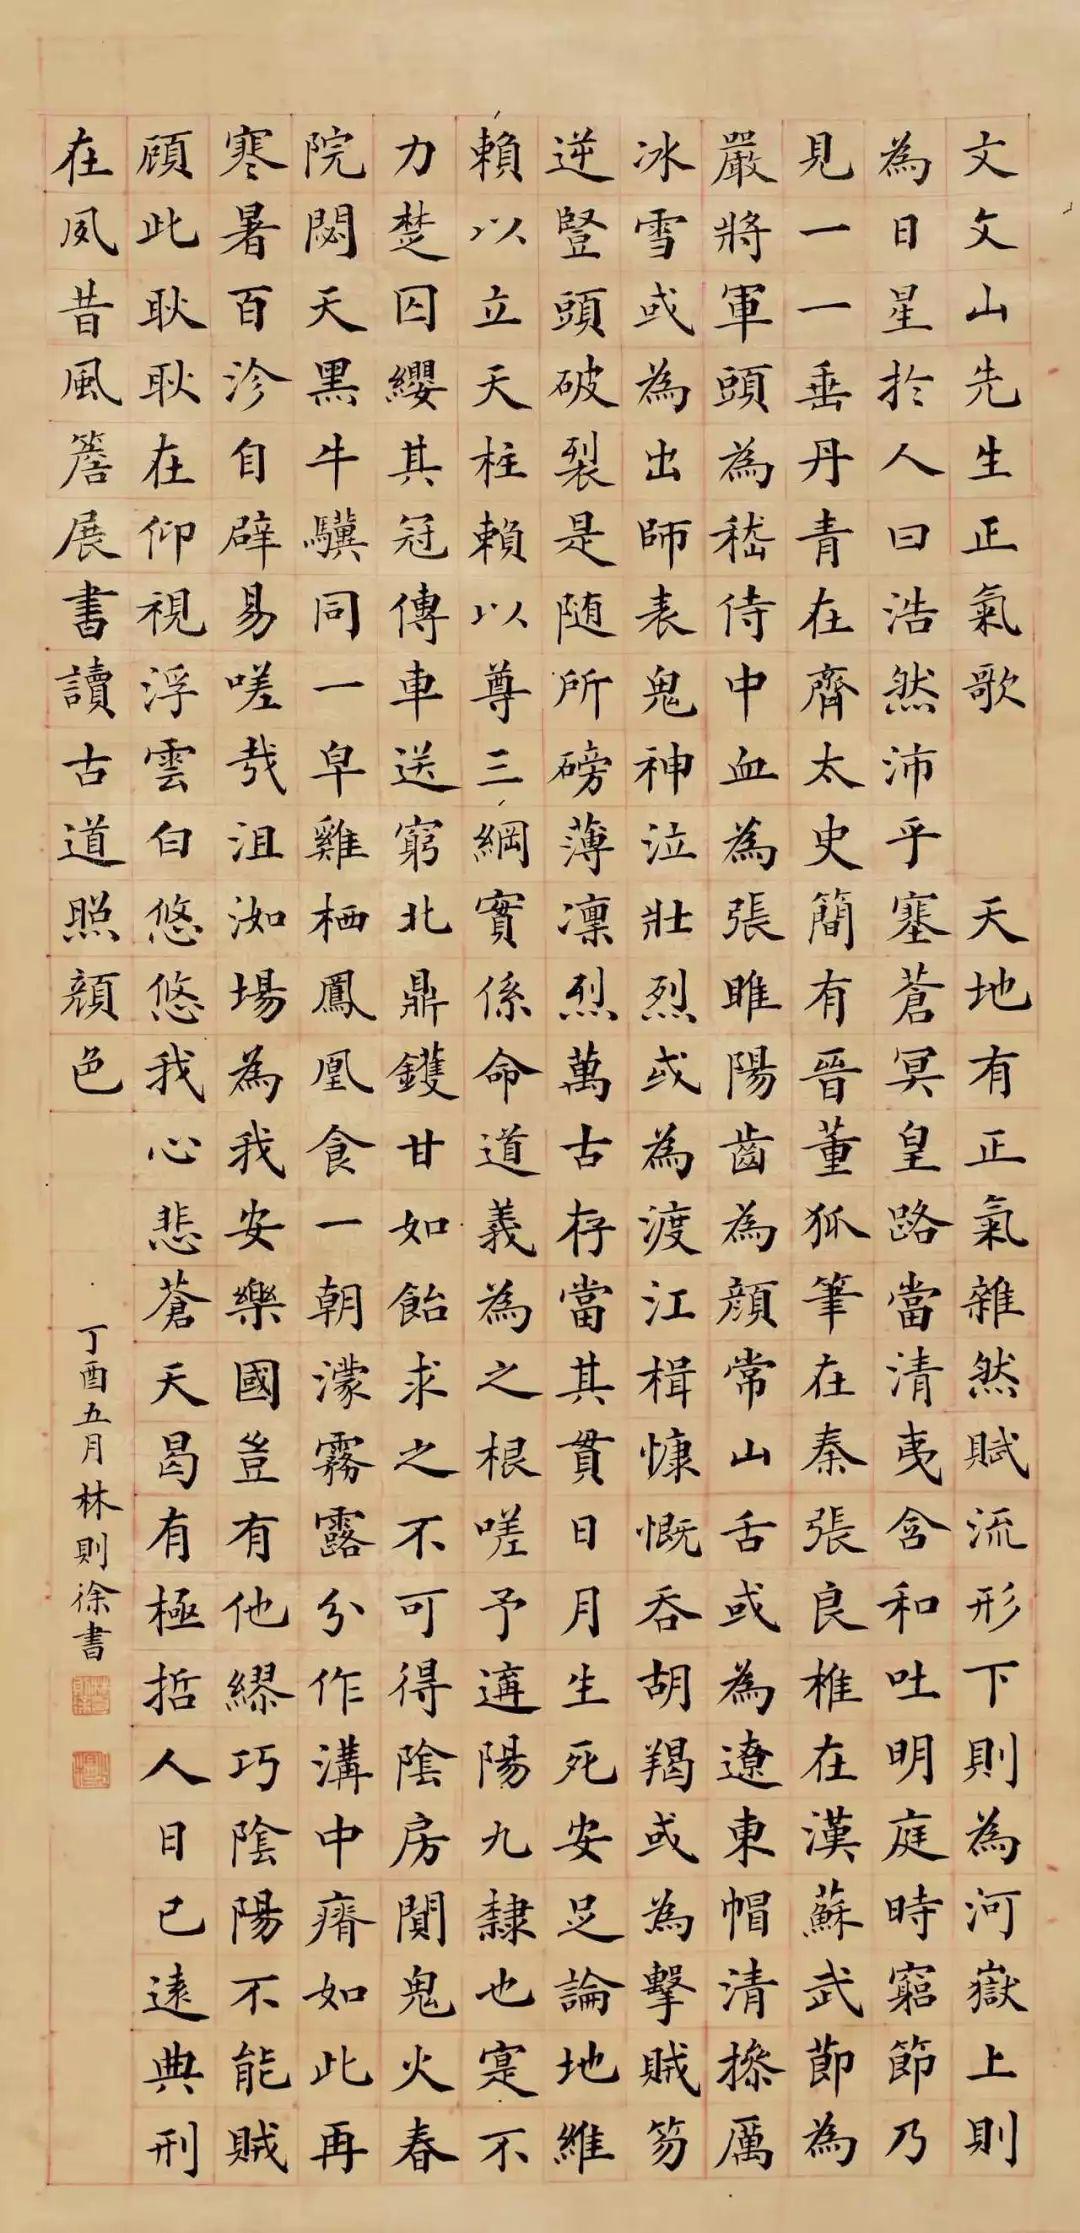 文文山先生正氣歌 天地有正氣雜然賦流形下則為河嶽上則
為日星於人曰浩然沛乎塞蒼冥皇路當清夷含和吐明庭時窮節乃
見一一垂丹青在齊太史簡有晉董狐筆在秦張良椎在漢蘇武節為
嚴將軍頭為嵇侍中血為張睢陽齒為顏常山舌或為遼東帽清操厲
冰雪或為出師表鬼神泣壯烈或為渡江楫慷慨吞胡羯或為擊賊笏
逆豎頭破裂是随所磅薄凛烈萬古存當其貫日月生死安足論地維
賴以立天柱賴以尊三綱實係命道義為之根嗟予遘陽九隸也寔不
力楚囚纓其冠傳車送窮北鼎鑊甘如飴求之不可得陰房闃鬼火春
院閟天黑牛驥同一皁雞栖鳳凰食一朝濛霧露分作溝中瘠如此再
寒暑百沴自辟易嗟哉沮洳場為我安樂國豈有他繆巧陰陽不能賊
顧此耿耿在仰視浮雲白悠悠我心悲蒼天曷有極哲人日已遠典刑
在夙昔風簷展書讀古道照顏色
丁酉五月林則徐書